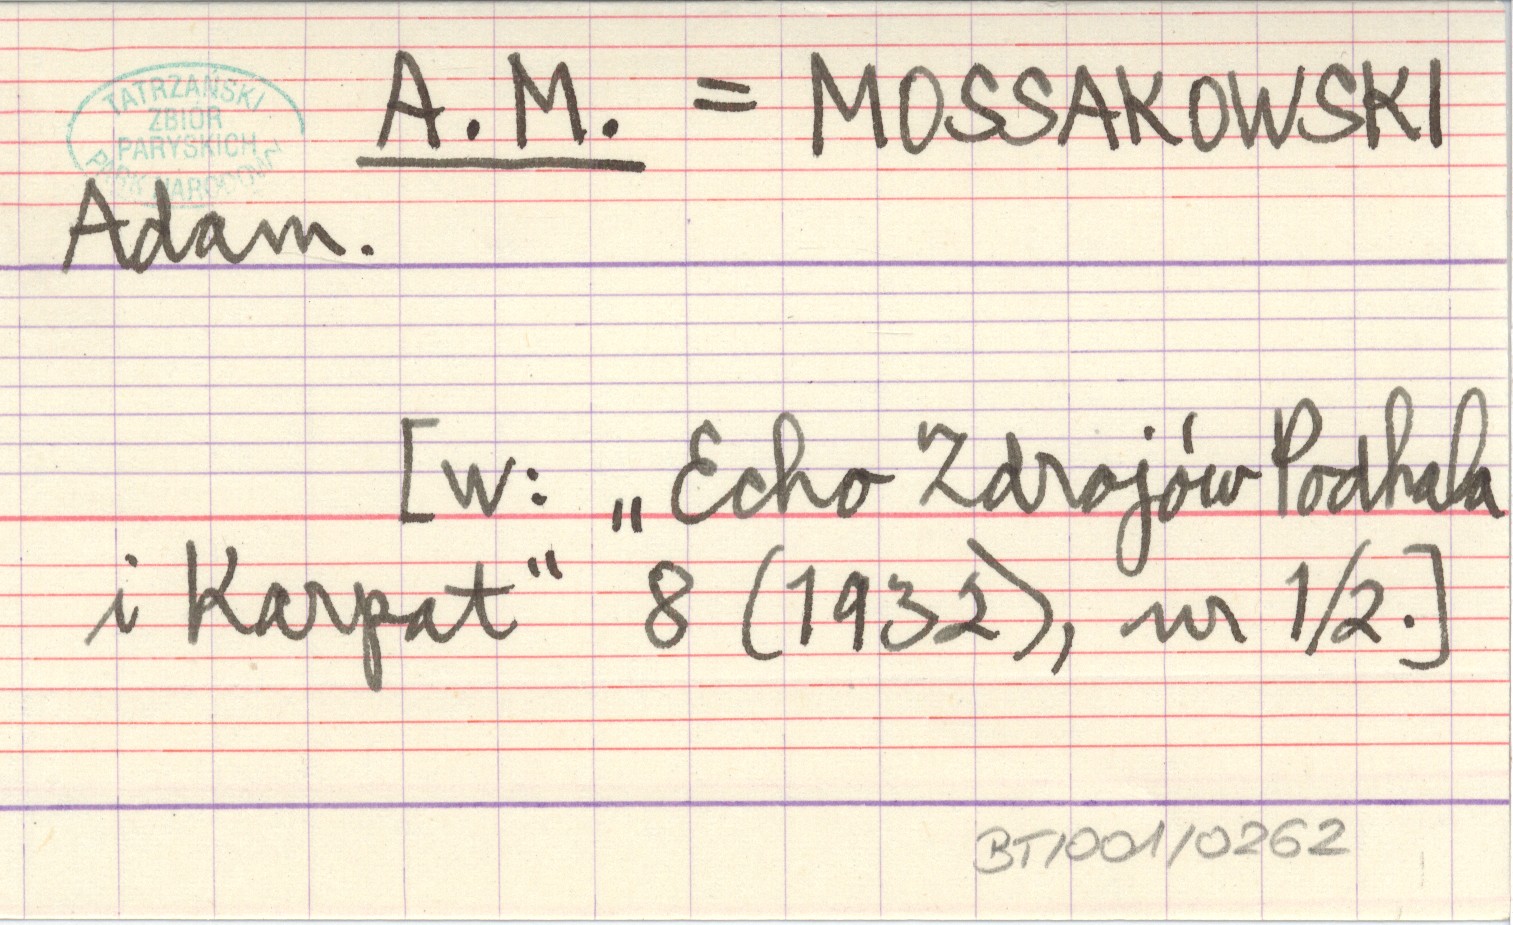 TATRZAŃSKI
ZBIÓR
PARYSKICH
PARK NARODOWY
A. M. = MOSSAKOWSKI
Adam.
[w: „Echo Zdrojów Podhala
i Karpat" 8 (1932), nr 1/2.]
BT/001/0262